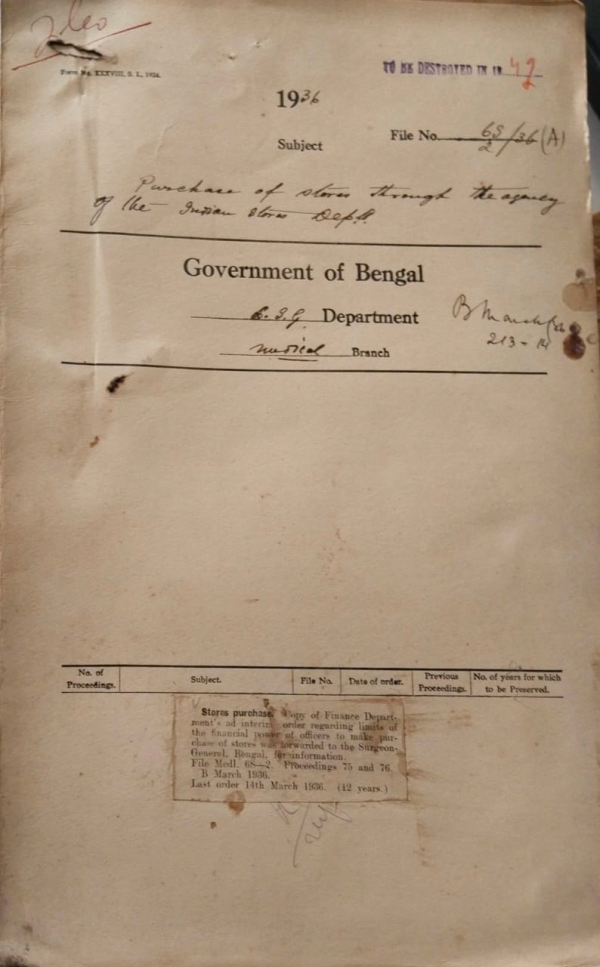 Form No. XXXVIII, S. I., 1934.
TO BE DESTROYED IN 19 42
1936
Subject
File No. 6S/2/36 (A)
Purchase of stores through the agency
of the Indian Stores Deptt.
Government of Bengal
L.S.G. Department
Medical Branch
B March/36
No. of Proceedings.
Subject.
File No.
Date of order.
Previous Proceedings.
No. of years for which to be Preserved.
Stores purchase. Copy of Finance Depart-
ment's ad interim order regarding limits of
the financial power of officers to make pur-
chase of stores was forwarded to the Surgeon-
General, Bengal, for information.
File Medl. 6S—2. Proceedings 75 and 76.
B March 1936.
Last order 14th March 1936. (12 years.)